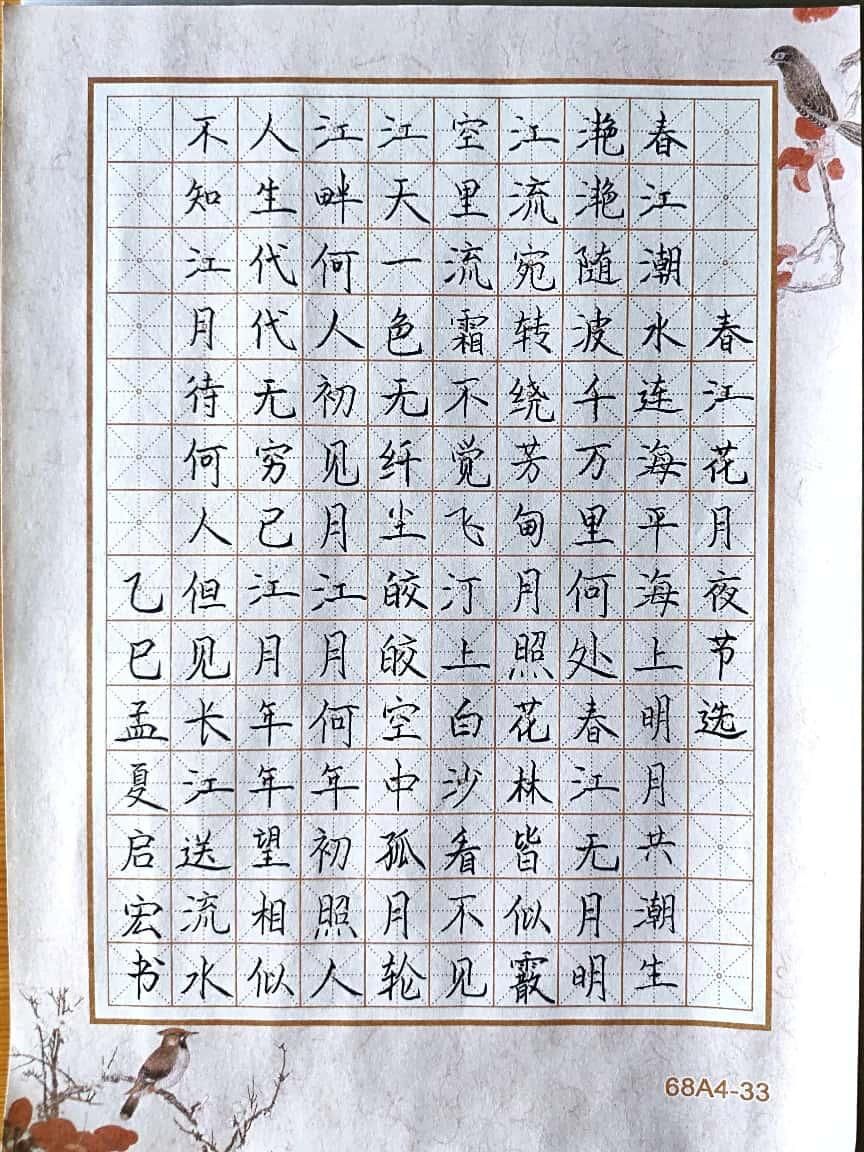 春江花月夜节选
春江潮水连海平海上明月共潮生
滟滟随波千万里何处春江无月明
江流宛转绕芳甸月照花林皆似霰
空里流霜不觉飞汀上白沙看不见
江天一色无纤尘皎皎空中孤月轮
江畔何人初见月江月何年初照人
人生代代无穷已江月年年望相似
不知江月待何人但见长江送流水
乙巳孟夏启宏书
68A4-33